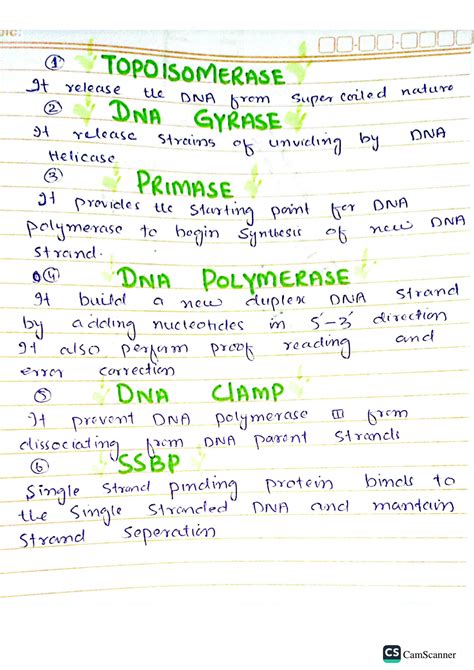 ① TOPOISOMERASE
It release the DNA from super coiled nature
② DNA GYRASE
It release strains of unviding by DNA
Helicase
③ PRIMASE
It provides the starting point for DNA
polymerase to begin synthesis of new DNA
strand.
④ DNA POLYMERASE
It build a new duplex DNA strand
by adding nucleotides in 5'-3' direction
It also perform proof reading and
error correction
⑤ DNA CLAMP
It prevent DNA polymerase III from
dissociating from DNA parent strands
⑥ SSBP
Single Strand pinding protein binds to
the single stranded DNA and mantain
strand seperation
CS CamScanner